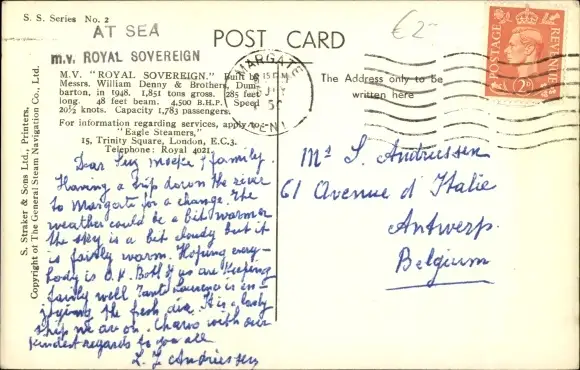 S. S. Series No. 2
AT SEA
m.v. ROYAL SOVEREIGN
POST CARD
€2-
M.V. "ROYAL SOVEREIGN." Built by
Messrs. William Denny & Brothers, Dum-
barton, in 1948. 1,851 tons gross. 285 feet
long. 48 feet beam. 4,500 B.H.P. Speed
20½ knots. Capacity 1,783 passengers.
For information regarding services, apply to:-
"Eagle Steamers,"
15, Trinity Square, London, E.C.3.
Telephone: Royal 4021.
S. Straker & Sons Ltd., Printers.
Copyright of The General Steam Navigation Co., Ltd.
MARGATE
KENT
The Address only to be
written here
POSTAGE
REVENUE
2D
Dear & family.
Having a trip down the river
to Margate for a change. The
weather could be a bit warmer
the sky is a bit cloudy but it
is fairly warm. Hoping every-
body is O.K. Both of us are keeping
fairly well Tante is en-
joying the fresh air. It is a lovely
ship we are on. Cheerio with our
kindest regards to you all
L. J. Andriessen
Mr J. Andriessen
61 Avenue d'Italie
Antwerp.
Belgium